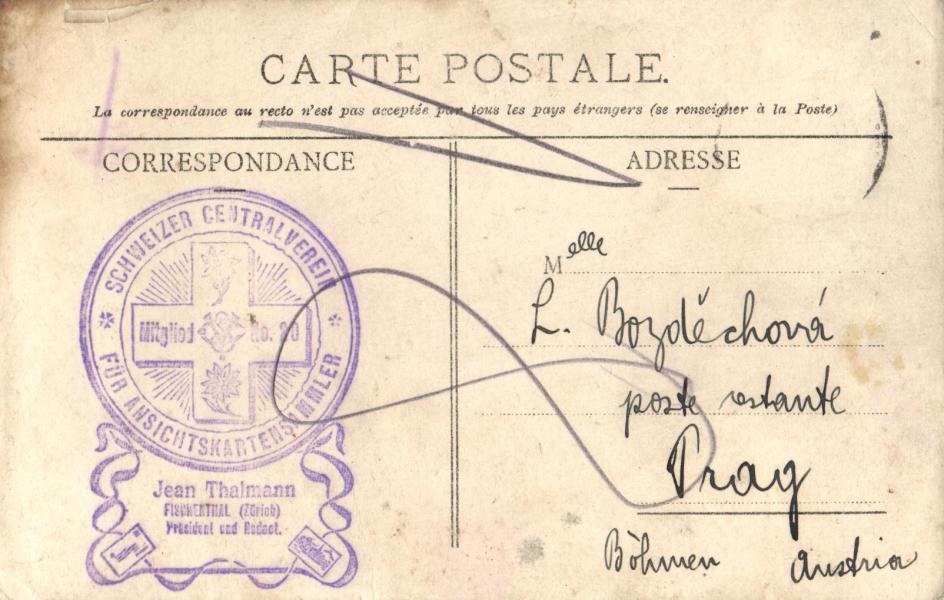 CARTE POSTALE.
La correspondance au recto n'est pas acceptée par tous les pays étrangers (se renseigner à la Poste)
CORRESPONDANCE
SCHWEIZER CENTRALVEREIN
FÜR ANSICHTSKARTENSAMMLER
Mitglied No. 20
Jean Thalmann
FISCHENTHAL (Zürich)
Präsident und Redact.
ADRESSE
Melle
L. Bozděchová
poste restante
Prag
Böhmen Austria